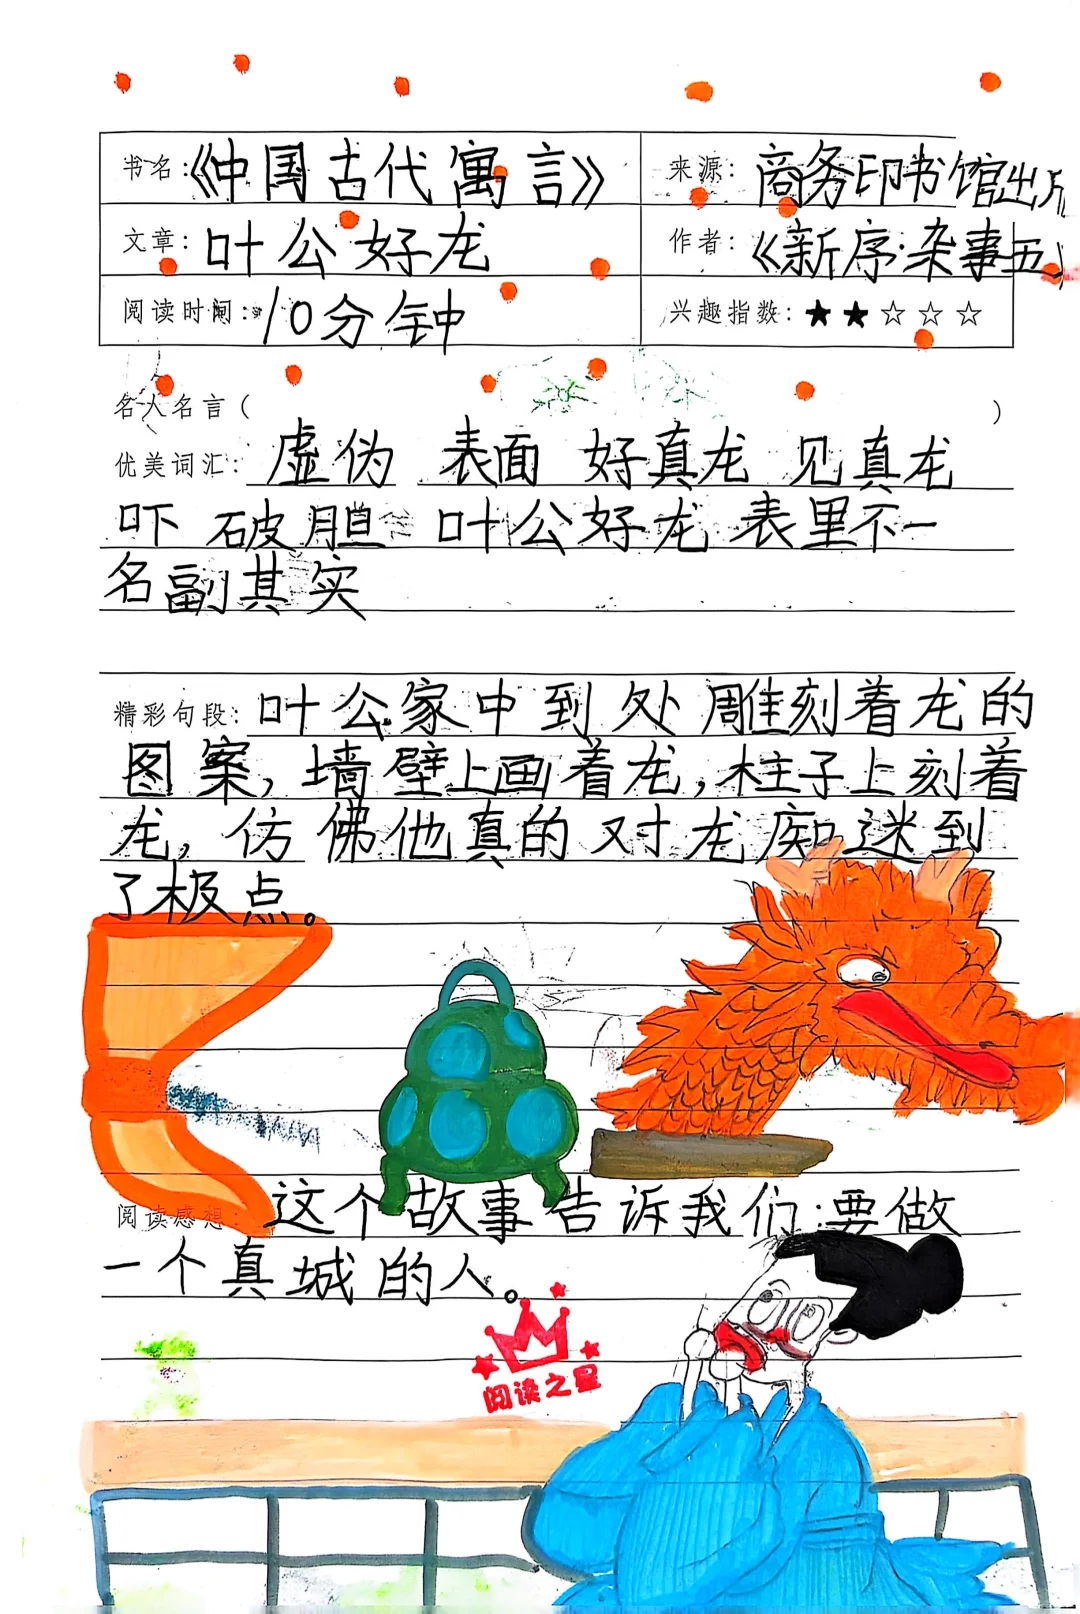 书名：《中国古代寓言》 来源：商务印书馆出版
文章：叶公好龙 作者：《新序·杂事五》
阅读时间：10分钟 兴趣指数：★★☆☆☆
名人名言（ ）
优美词汇：虚伪 表面 好真龙 见真龙
吓破胆 叶公好龙 表里不一
名副其实
精彩句段：叶公家中到处雕刻着龙的
图案，墙壁上画着龙，柱子上刻着
龙，仿佛他真的对龙痴迷到
了极点。
阅读感想：这个故事告诉我们：要做
一个真城的人。
阅读之星